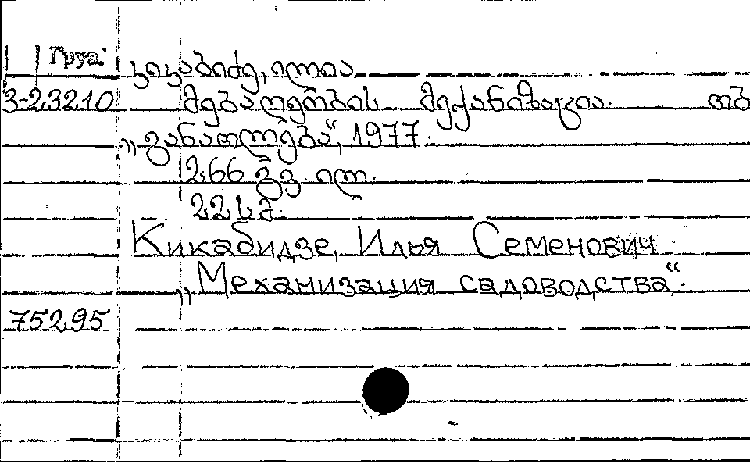 Груз.
კიკაბიძე, ილია
3-23210 მებაღეობის მექანიზაცია. თბ
„განათლება“, 1977.
266 გვ. ილ.
22 სმ.
Кикабидзе, Илья Семенович
„Механизация садоводства“.
75295